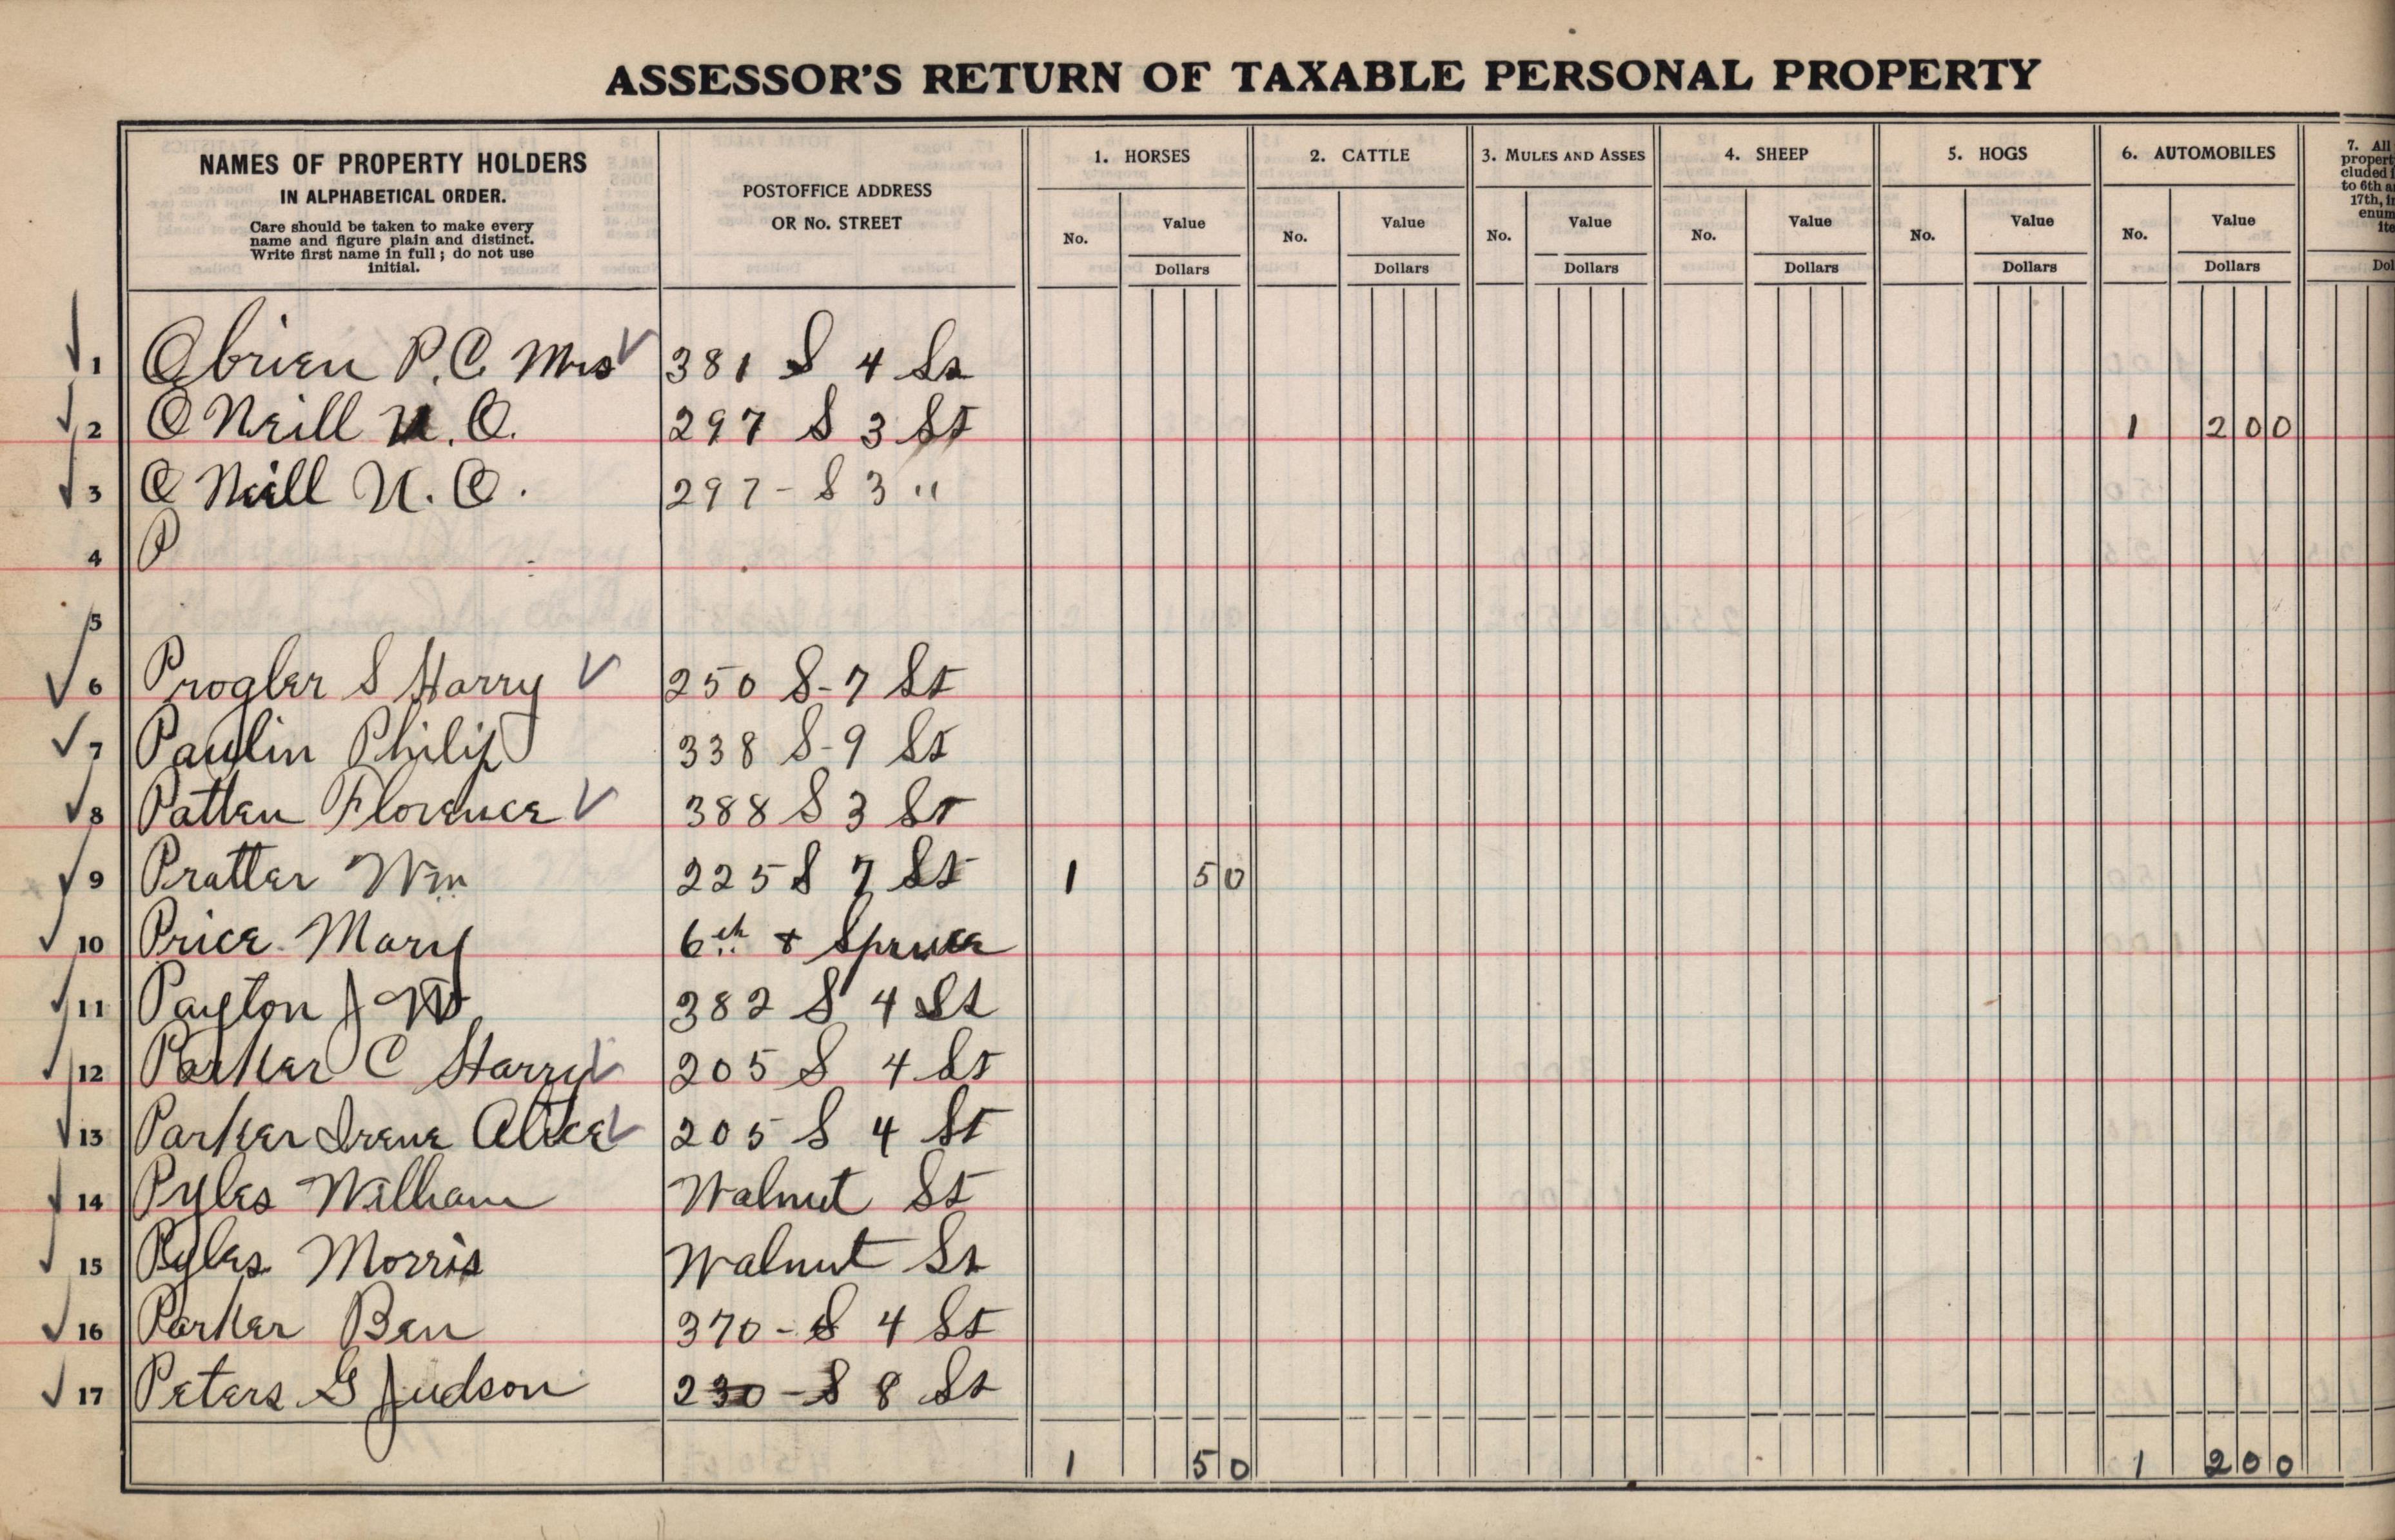 ASSESSOR'S RETURN OF TAXABLE PERSONAL PROPERTY
NAMES OF PROPERTY HOLDERS
IN ALPHABETICAL ORDER.
Care should be taken to make every
name and figure plain and distinct.
Write first name in full; do not use
initial.
POSTOFFICE ADDRESS
OR No. STREET
1. HORSES
No.
Value
Dollars
2. CATTLE
No.
Value
Dollars
3. MULES AND ASSES
No.
Value
Dollars
4. SHEEP
No.
Value
Dollars
5. HOGS
No.
Value
Dollars
6. AUTOMOBILES
No.
Value
Dollars
7. All
propert
cluded i
to 6th a
17th, in
enum
ite
Dol
1 Obrien P. C. Mrs 381 S 4 St
2 O Neill N. O. 297 S 3 St 1 200
3 O Neill N. O. 297 - S 3 "
4 P
5
6 Progler S Harry 250 S - 7 St
7 Paulin Philip 338 S - 9 St
8 Patten Florence 388 S 3 St
9 Pratter Wm 225 S 7 St 1 50
10 Price Mary 6th & Spruce
11 Payton J W 382 S 4 St
12 Parker C Harry 205 S 4 St
13 Parker Irene Alice 205 S 4 St
14 Pyles William Walnut St
15 Pyles Morris Walnut St
16 Parker Ben 370 - S 4 St
17 Peters G Judson 230 - S 8 St
1 50 1 200